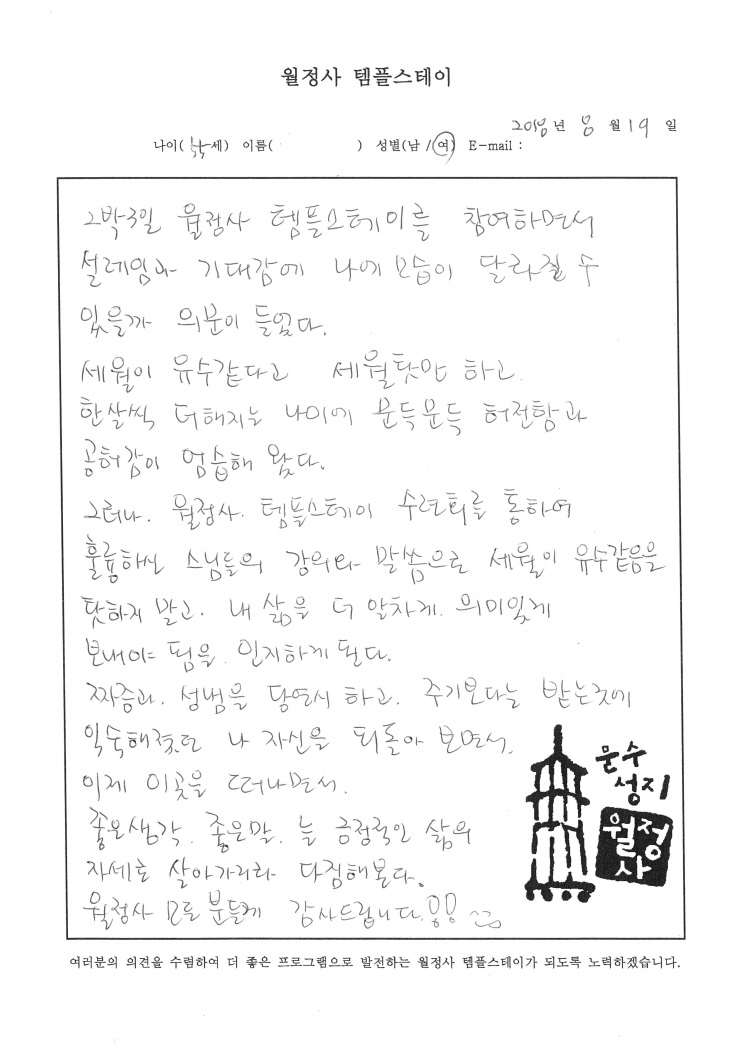 월정사 템플스테이
2018년 8월 19일
나이( 세) 이름( ) 성별(남 /여) E-mail :
2박3일 월정사 템플스테이를 참여하면서
설레임과 기대감에 나에 모습이 달라질 수
있을까 의문이 들었다.
세월이 유수같다고 세월탓만 하고
한살씩 더해지는 나이에 문득문득 허전함과
공허감이 엄습해 왔다.
그러나. 월정사. 템플스테이 수련회를 통하여
훌륭하신 스님들의 강의와 말씀으로 세월이 유수같음을
탓하지 말고. 내 삶을 더 알차게. 의미있게
보내야 됨을. 인지하게 된다.
짜증과. 성냄을 당연시 하고. 주기보다는 받는것에
익숙해졌던 나 자신을 뒤돌아 보면서.
이제 이곳을 떠나면서.
좋은생각. 좋은말. 늘 긍정적인 삶의
자세로 살아가리라 다짐해본다.
월정사 모든 분들께 감사드립니다.!! ^^
문수
성지
월정
사
여러분의 의견을 수렴하여 더 좋은 프로그램으로 발전하는 월정사 템플스테이가 되도록 노력하겠습니다.